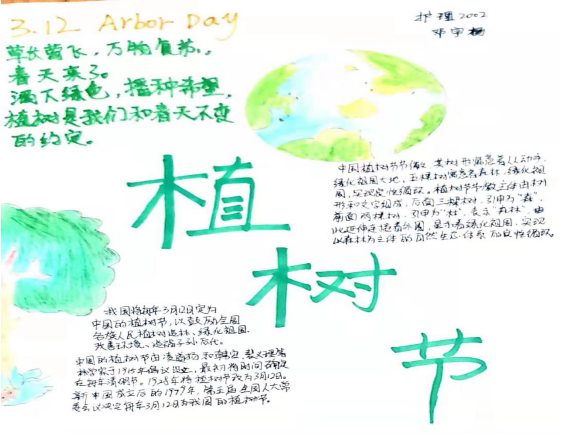 3.12 Arbor Day
护理2002
邓宇
草长莺飞，万物复苏，
春天来了。
洒下绿色，播种希望，
植树是我们和春天不变
的约定。
植
树
节
中国植树节节徽 树形
绿化祖国大地，五棵树寓意着森林，绿化祖
国，实现良性循环。植树节节徽主体由树
形和文字组成，后面三棵树，引申为"森"，
前面两棵树，引申为"林"，表示"森林"，由
此延伸连接着外圈，显示着绿化祖国，实现
以森林为主体的自然生态体系的良性循环
我国将每年3月12日定为
中国的植树节，以鼓励全国
各族人民植树造林，绿化祖国，
改善环境，造福子孙后代。
中国的植树节由凌道扬和韩安、裴义理等
林学家于1915年倡议设立，最初将时间确定
在每年清明节。1928年将植树节改为3月12日。
新中国成立后的1979年，第五届全国人大常
委会议决定每年3月12日为我国的植树节。